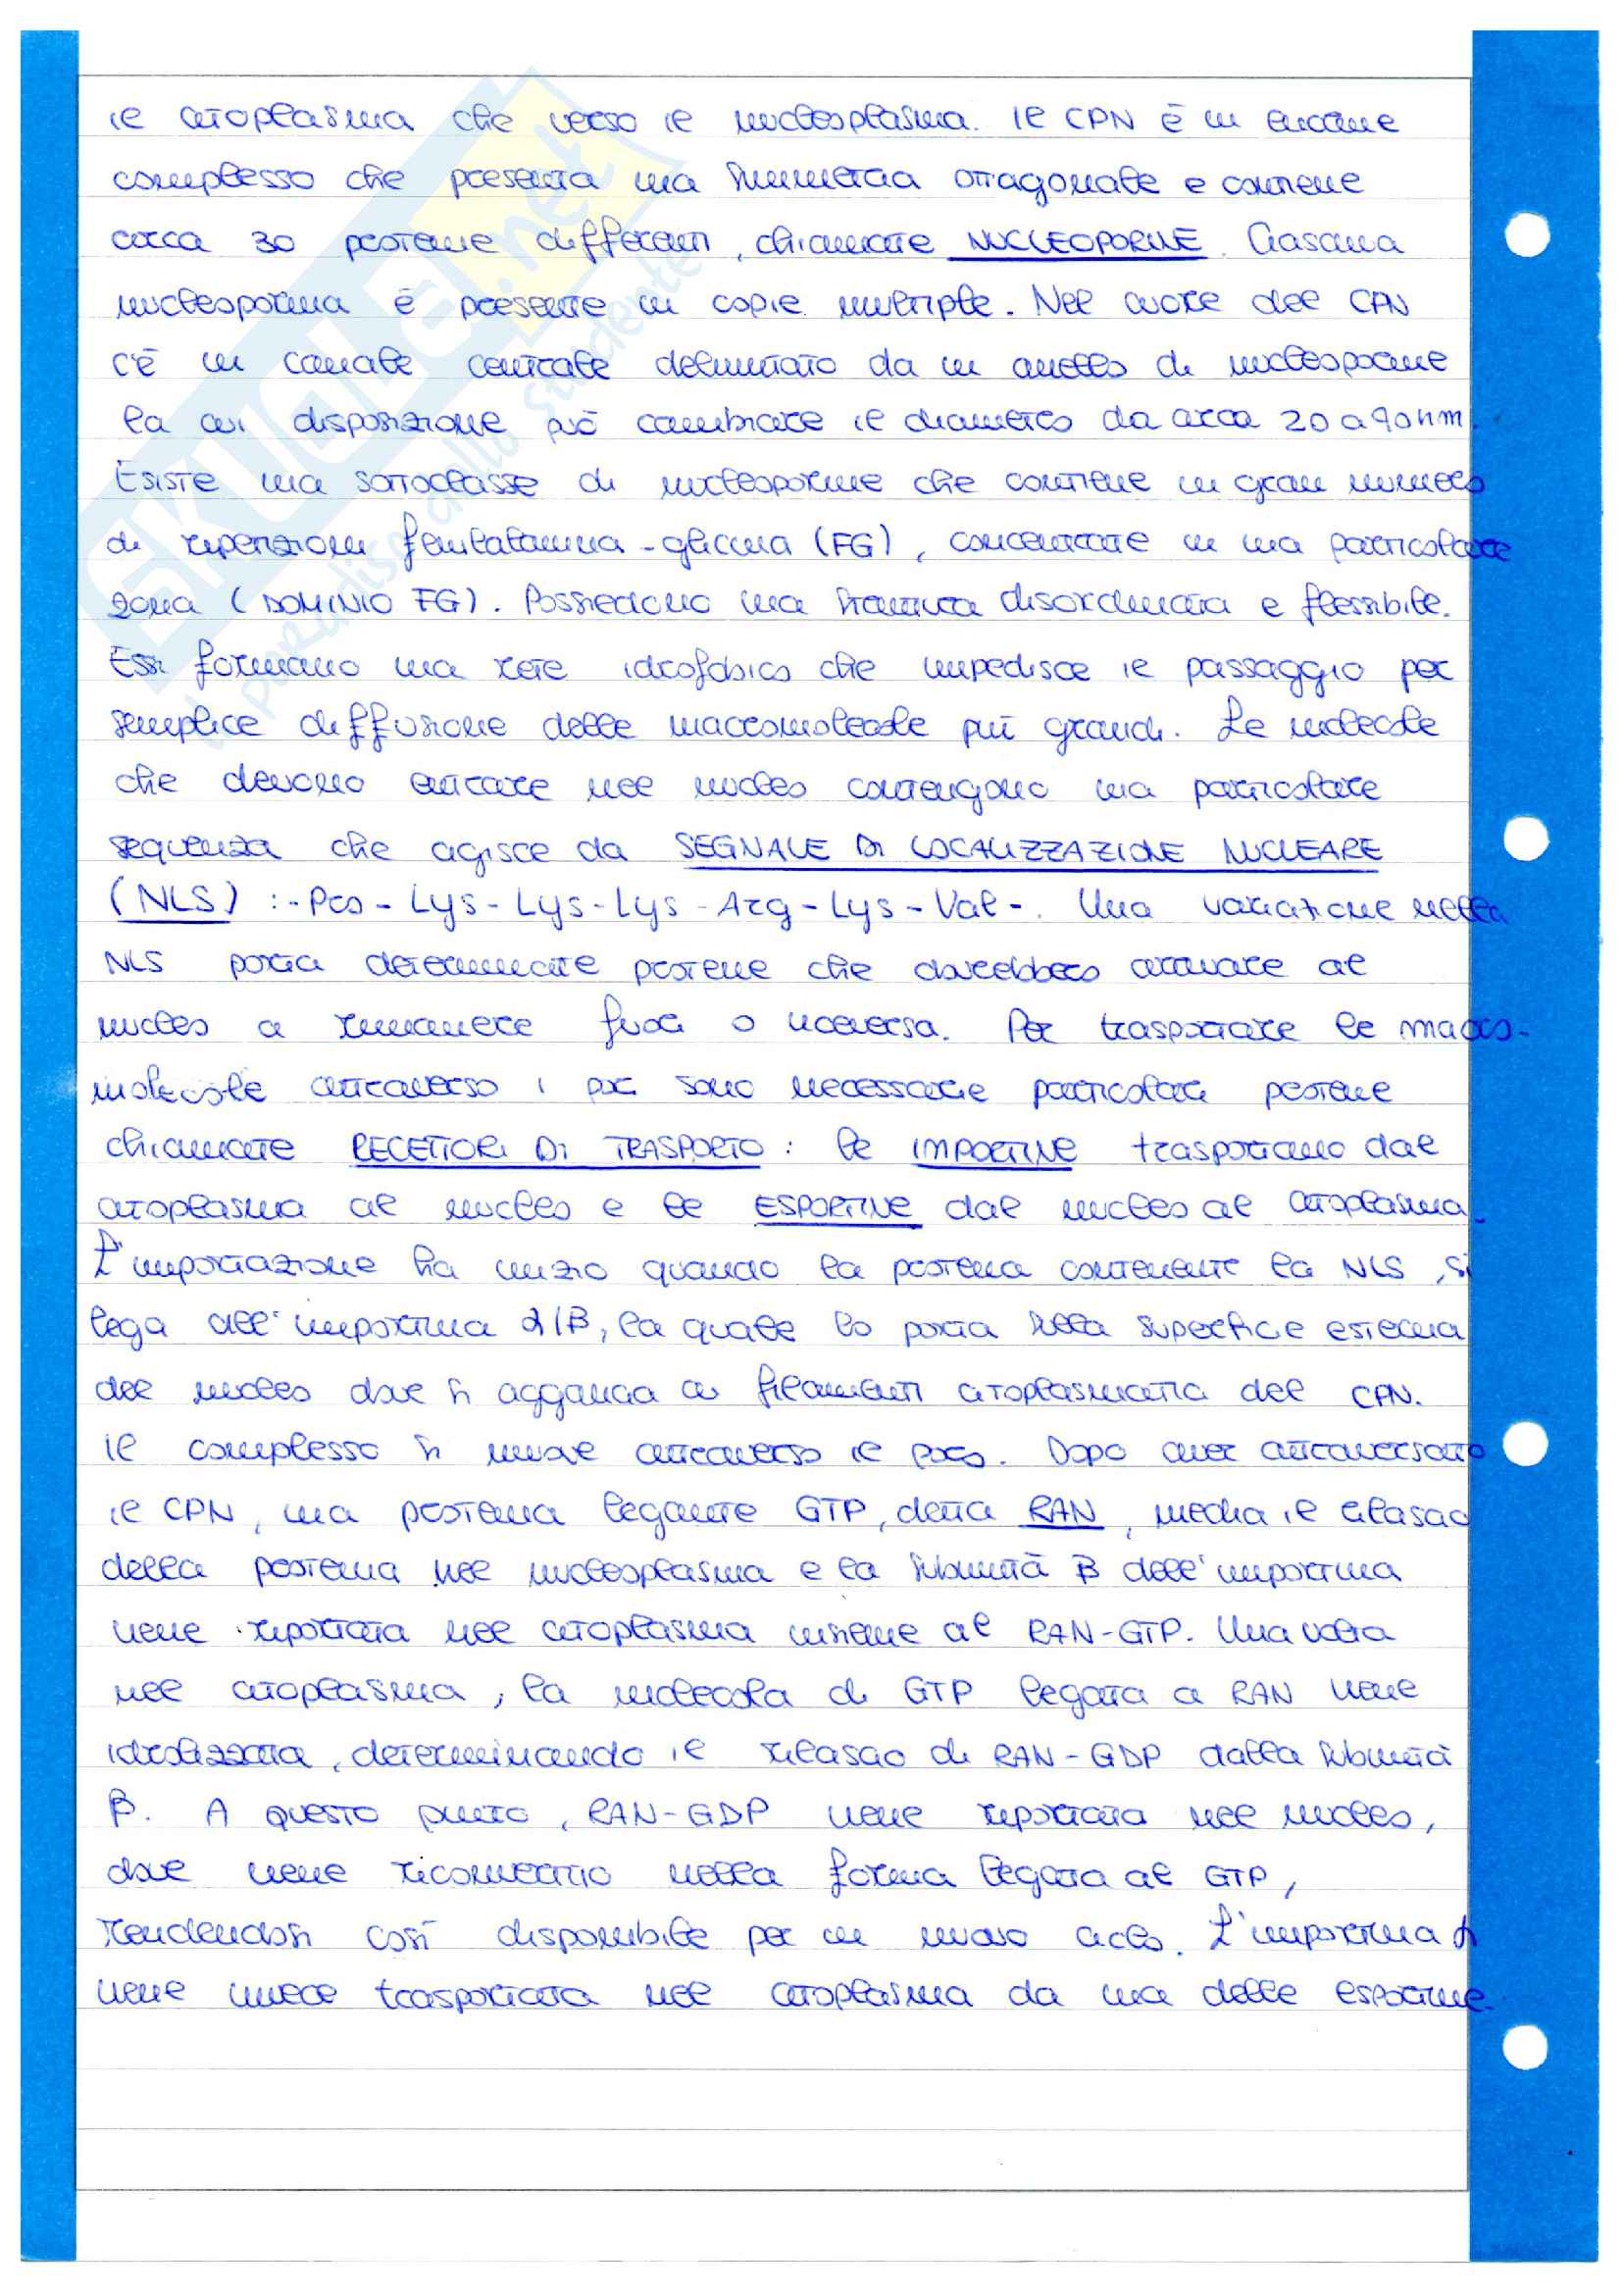 il citoplasma che verso il nucleoplasma. Il CPN è un enorme
complesso che presenta una simmetria ottagonale e contiene
circa 30 proteine differenti, chiamate NUCLEOPORINE. Ciascuna
nucleoporina è presente in copie multiple. Nel cuore del CPN
c'è un canale centrale delimitato da un anello di nucleoporine
la cui disposizione può cambiare il diametro da circa 20 a 40 nm.
Esiste una sottoclasse di nucleoporine che contiene un gran numero
di ripetizioni fenilalanina-glicina (FG), concentrate in una particolare
zona (DOMINIO FG). Possiedono una struttura disordinata e flessibile.
Essi formano una rete idrofobica che impedisce il passaggio per
semplice diffusione delle macromolecole più grandi. Le molecole
che devono entrare nel nucleo contengono una particolare
sequenza che agisce da SEGNALE DI LOCALIZZAZIONE NUCLEARE
(NLS) :-Pro-Lys-Lys-Lys-Arg-Lys-Val-. Una variazione nella
NLS porta determinate proteine che dovrebbero arrivare al
nucleo a rimanere fuori o viceversa. Per trasportare le macro-
molecole attraverso i pori sono necessarie particolari proteine
chiamate RECETTORI DI TRASPORTO: le IMPORTINE trasportano dal
citoplasma al nucleo e le ESPORTINE dal nucleo al citoplasma.
L'importazione ha inizio quando la proteina contenente la NLS, si
lega all'importina α/β, la quale lo porta sulla superficie esterna
del nucleo dove si aggancia ai filamenti citoplasmatici del CPN.
Il complesso si muove attraverso il poro. Dopo aver attraversato
il CPN, una proteina legante GTP, detta RAN, media il rilascio
della proteina nel nucleoplasma e la subunità β dell'importina
viene riportata nel citoplasma insieme al RAN-GTP. Una volta
nel citoplasma, la molecola di GTP legata a RAN viene
idrolizzata, determinando il rilascio di RAN-GDP dalla subunità
β. A questo punto, RAN-GDP viene riportata nel nucleo,
dove viene riconvertito nella forma legata al GTP,
rendendosi così disponibile per un nuovo ciclo. L'importina α
viene invece trasportata nel citoplasma da una delle esportine.
SKUOLA.net
il paradiso dello studente